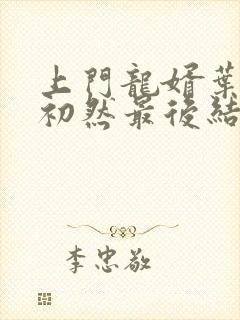 上門龍婿葉
初然最後結
李忠敬